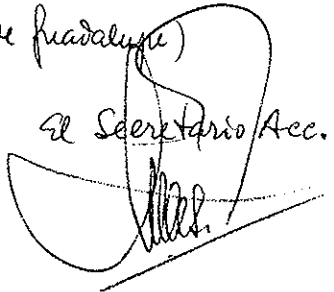 de Guadalupe)
El Secretario Acc.